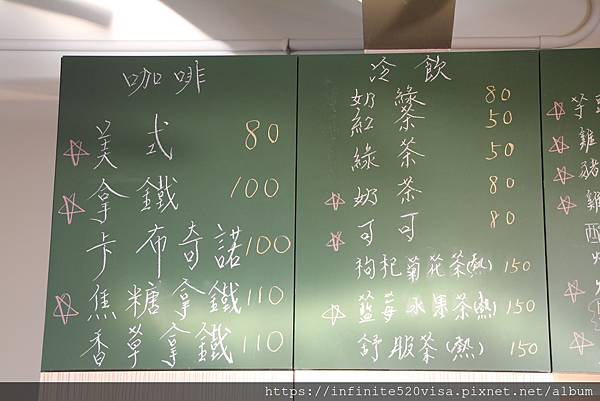 咖啡
☆美式 80
☆拿鐵 100
卡布奇諾 100
☆焦糖拿鐵 110
香草拿鐵 110
冷飲
奶綠 80
紅茶 50
綠茶 50
☆奶茶 80
☆可可 80
枸杞菊花茶(熱) 150
☆藍莓水果茶(熱) 150
舒服茶(熱) 150
☆雞
☆豬
☆雞
https://infinite520visa.pixnet.net/album